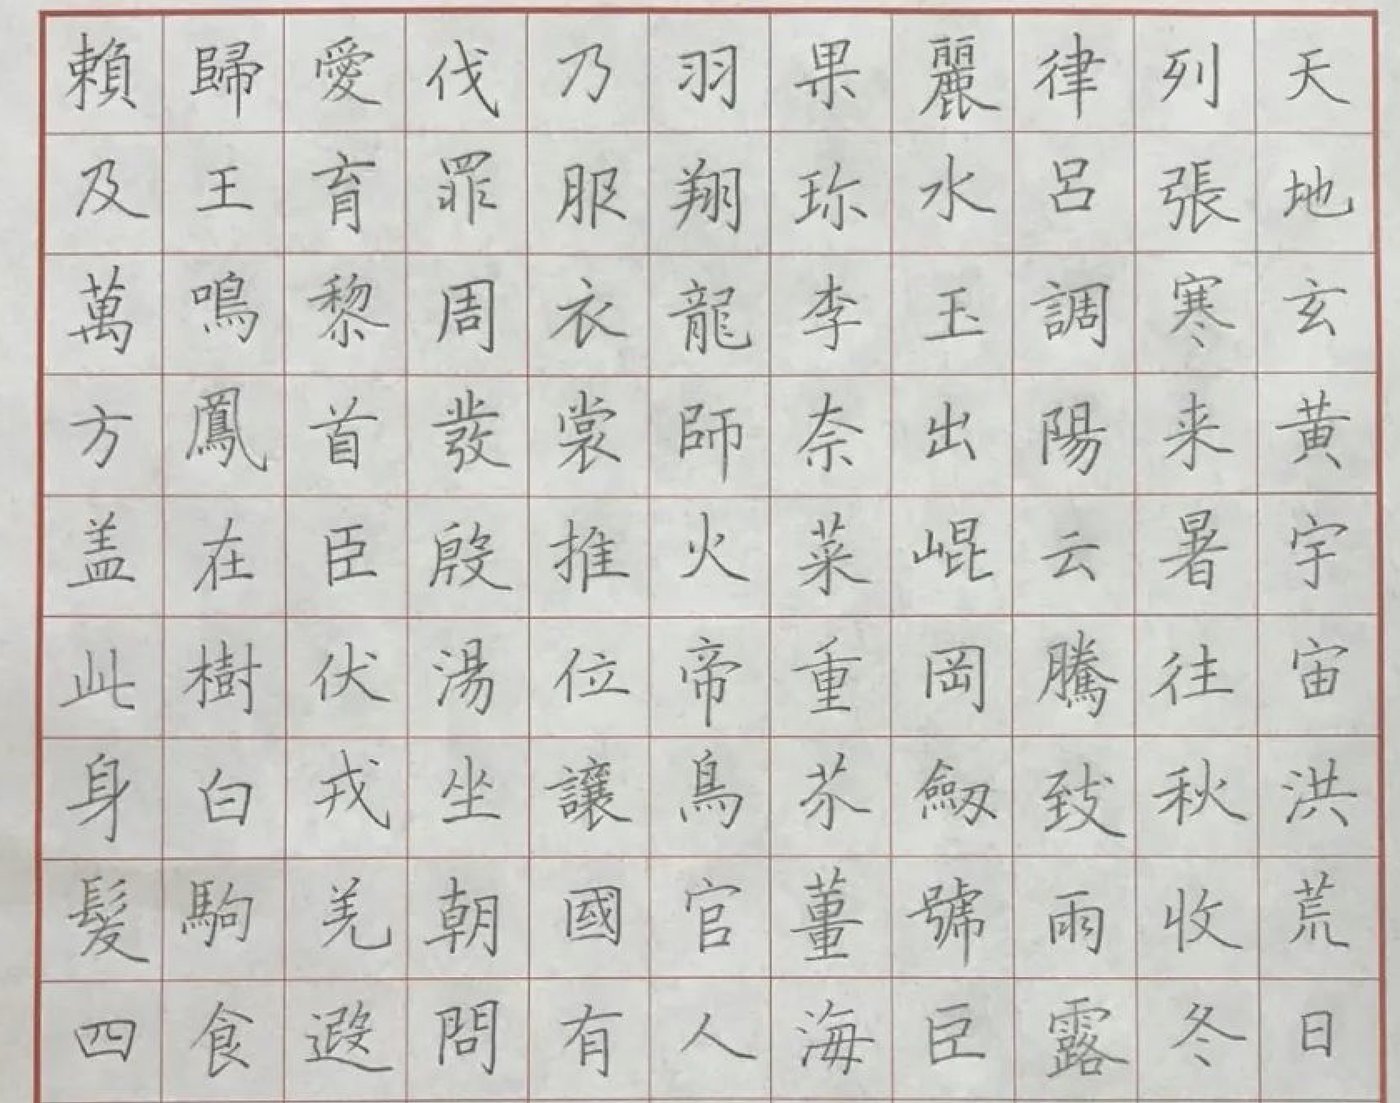 天地玄黄宇宙洪荒日
列張寒来暑往秋收冬
律呂調陽云騰致雨露
麗水玉出崐岡劒號巨
果珎李奈菜重芥薑海
羽翔龍師火帝鳥官人
乃服衣裳推位讓國有
伐罪周發殷湯坐朝問
愛育黎首臣伏戎羌遐
歸王鳴鳳在樹白駒食
賴及萬方盖此身髮四